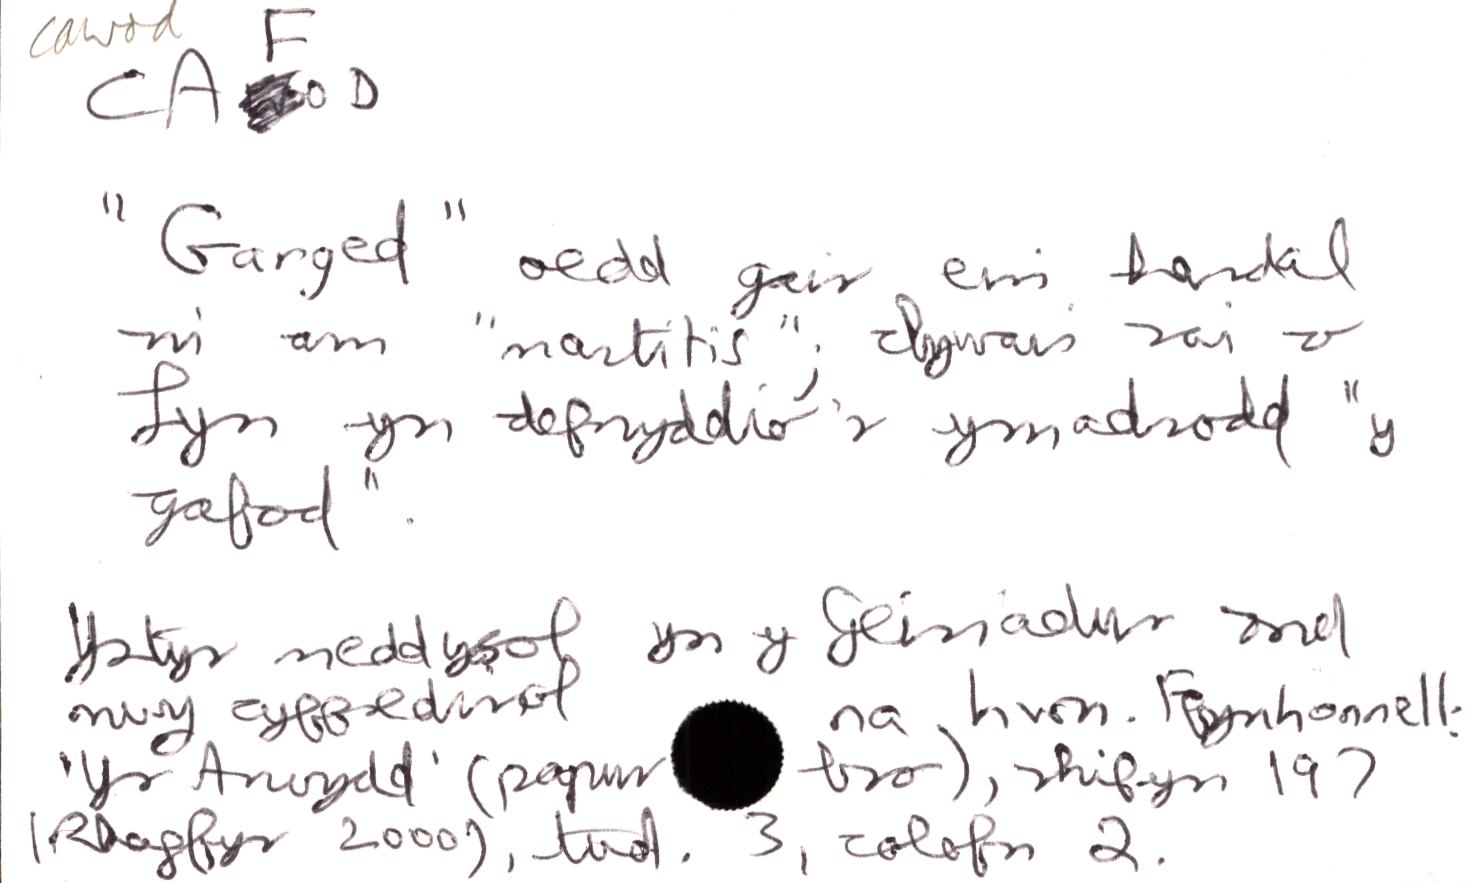 cawod
F
CA OD
"Garged" oedd gair ein hardal
ni am "mastitis"; clywais rai o
Lŷn yn defnyddio'r ymadrodd "y
gafod".
Ystyr meddygol yn y Geiriadur ond
mwy cyffredinol na hwn. Ffynhonnell:
'Yr Arwydd' (papur bro), rhifyn 197
(Rhagfyr 2000), tud. 3, colofn 2.